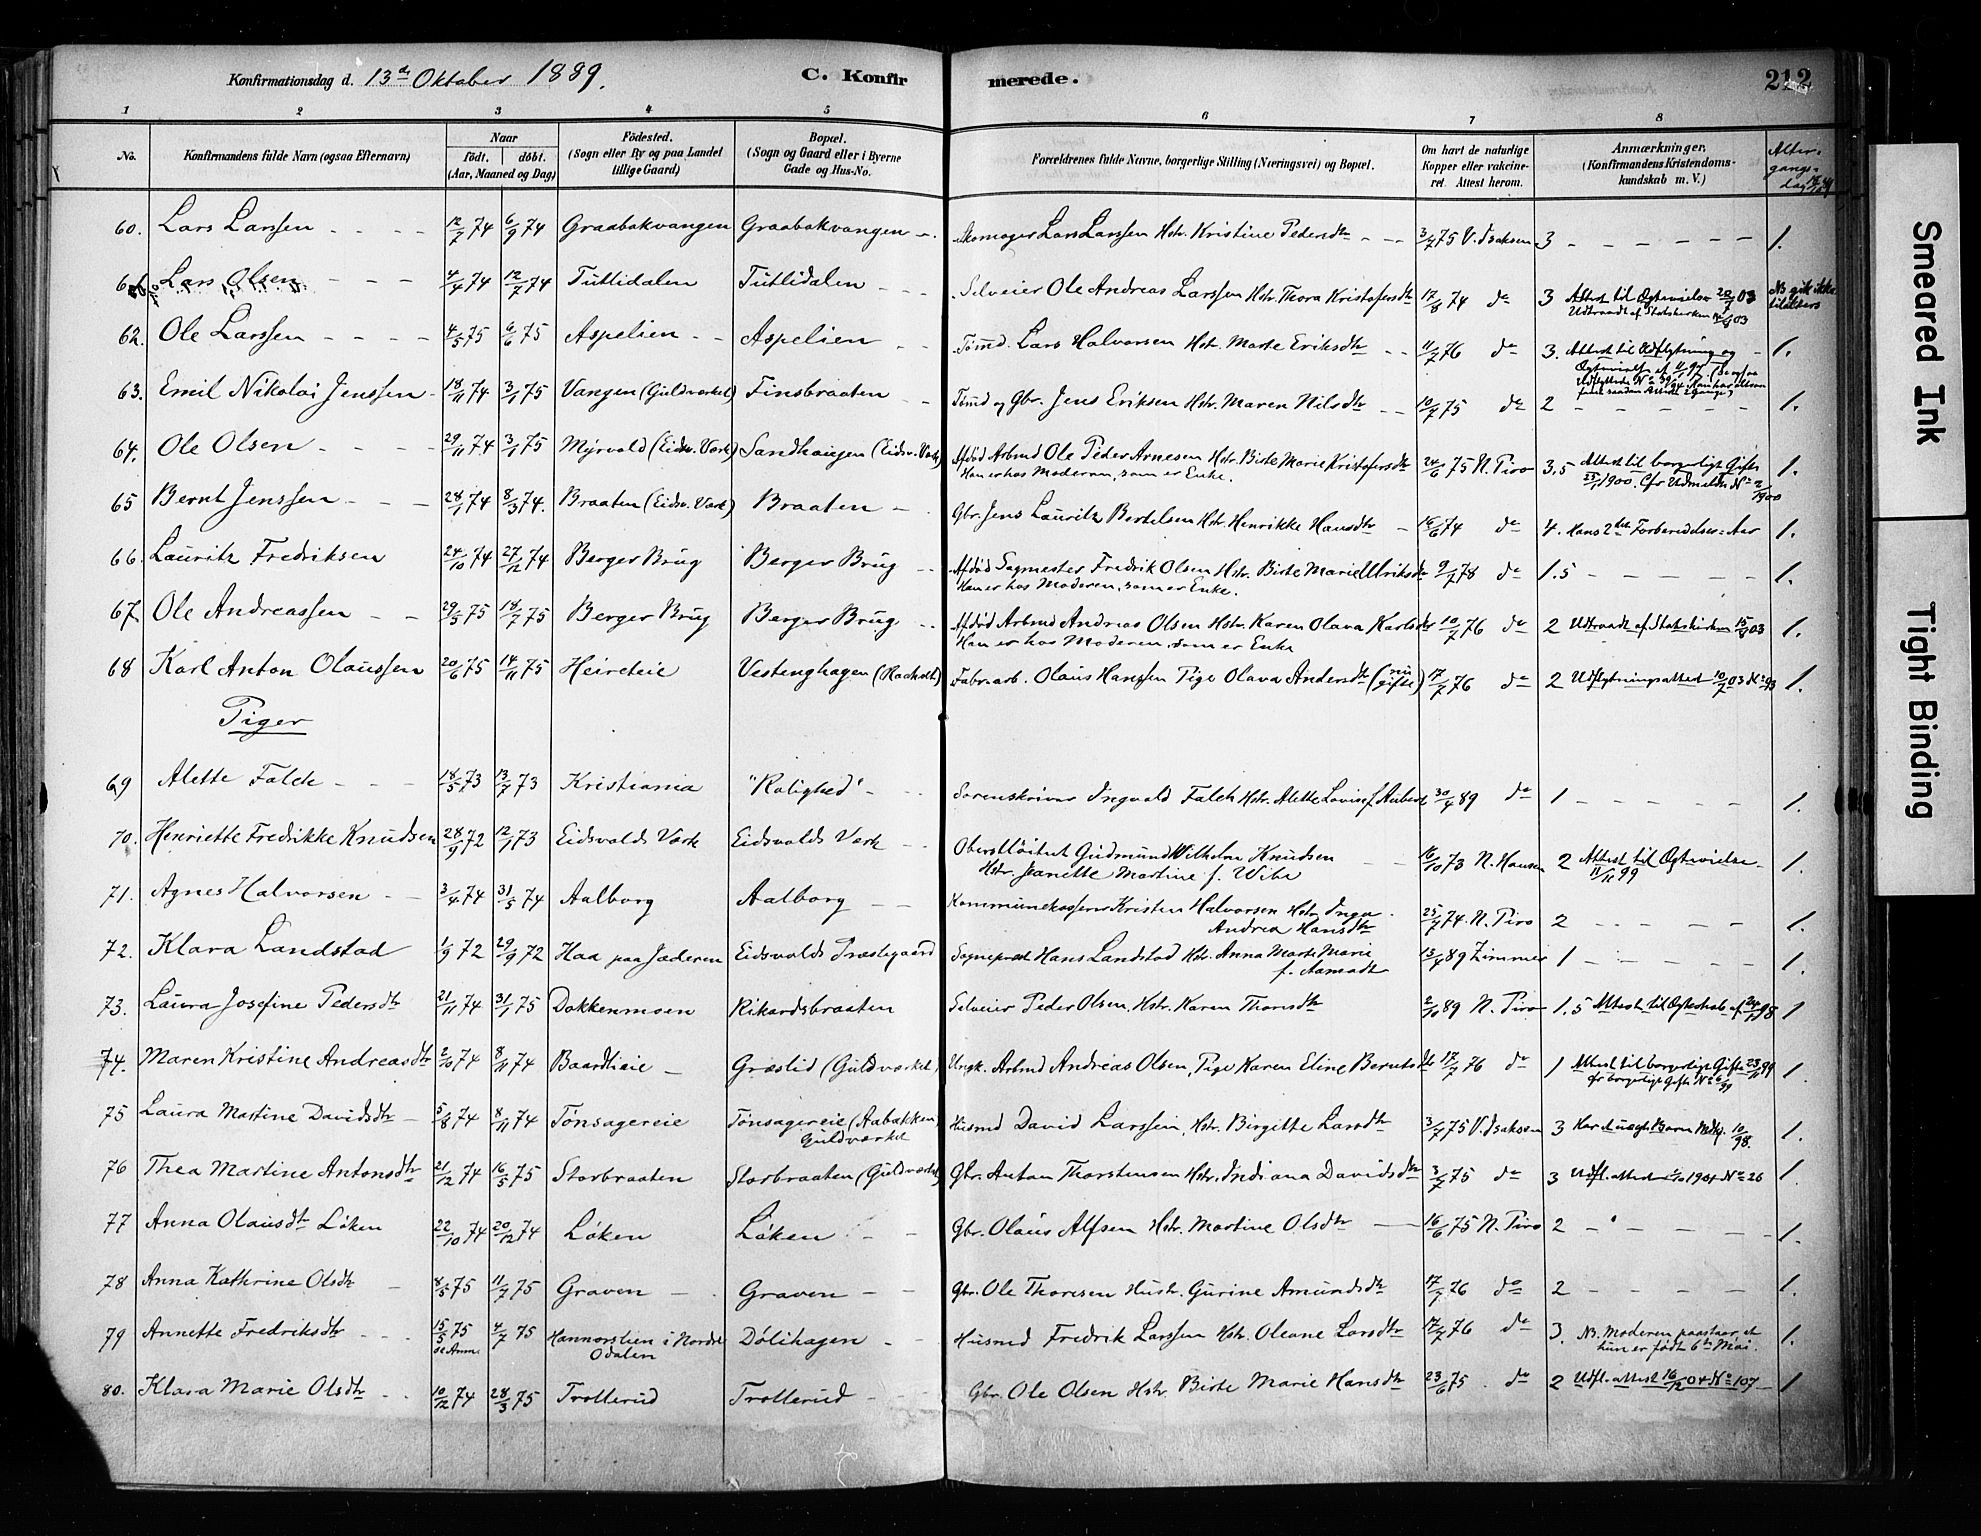 Konfirmationsdag d. 13de Oktober 1889. C. Konfirmerede. 212
1 2 3 4 5 6 7 8
No. Konfirmandens fulde Navn (ogsaa Efternavn) Naar født. døbt. (Aar, Maaned og Dag) Fødested. (Sogn eller By og paa Landet tillige Gaard) Bopæl. (Sogn og Gaard eller i Byerne Gade og Hus-No. Forældrenes fulde Navne, borgerlige Stilling (Næringsvei) og Bopæl. Om havt de naturlige Kopper eller vakcineret. Attest herom. Anmærkninger. (Konfirmandens Kristendomskundskab m. V.) Altergangsdag
60. Lars Larssen 12/7 74 6/9 74 Graabakvangen Graabakvangen Skomager Lars Larssen Hstr. Kristine Pedersdtr 3/7 75 V. Isaksen 3 1.
61. Lars Olsen 4/4 74 12/7 74 Tuttidalen Tuttidalen Selveier Ole Andreas Larssen Hstr. Thora Kristofersdtr 17/8 74 do 3 Attest til Ægtevielse 20/7 03 Udtraadt af Statskirken 03 NB gik ikke til alters
62. Ole Larssen 4/5 75 6/6 75 Aspelien Aspelien Tømd. Lars Halvorsen Hstr. Marte Eriksdtr 11/7 76 do 3. Attest til Udflytning og 1.
63. Emil Nikolai Jenssen 18/11 74 3/1 75 Vangen (Guldverket) Finsbraaten Tømd og Gbr. Jens Eriksen Hstr. Maren Nilsdtr 10/7 75 do 2 1.
64. Ole Olsen 29/11 74 3/1 75 Myrvold (Eidsv. Værk) Sandhaugen (Eidsv. Værk) Afdød Arbmd Ole Peder Arnesen Hstr. Birte Marie Kristofersdtr 24/6 75 N. Tiro 3,5 Attest til borgerligt Gifte 1.
Han er hos Moderen, som er Enke. 1900. Cfr Udmeldte No 2/1900
65 Bernt Jenssen 28/1 74 8/3 74. Braaten (Eidsv. Værk) Braaten Gbr. Jens Lauritz Bertelsen Hstr. Henrikke Hansdtr 16/6 74 do 4. Hans 2det Forberedelses-Aar 1.
66. Lauritz Fredriksen 24/10 74 27/12 74 Berger Brug Berger Brug Afdød Sagmester Fredrik Olsen Hstr. Birte Marie Ulriksdtr 9/7 78 do 1.5 1.
Han er hos Moderen, som er Enke.
67. Ole Andreassen 29/5 75 18/7 75 Berger Brug Berger Brug Afdød Arbmd Andreas Olsen Hstr. Karen Olava Karlsdtr 10/7 76 do 2 Udtraadt af Statskirken 03 1.
Han er hos Moderen, som er Enke
68 Karl Anton Olaussen 20/6 75 14/11 75 Heireteie Vestenghagen (Raaholt) Fabr.arb. Olaus Hanssen Pige Olava Andersdtr (nu gifte) 17/7 76 do 2 Udflytningsattest 10/7 03 No 93 1.
Piger
69 Alette Falch 18/5 73 13/7 73 Kristiania "Rolighed" Sorenskriver Ingvald Falch Hstr. Alette Lovise f. Aubert 30/4 89 do 1 1.
70. Henriette Fredrikke Knudsen 28/9 72 12/1 73 Eidsvolds Værk Eidsvolds Værk Oberstløitnt Gudmund Wilhelm Knudsen 16/10 73 N. Hansen 2 Attest til Ægtevielse 1.
Hstr. Jeanette Martine f. Wibe 11/11 99
71. Agnes Halvorsen 3/4 74 31/5 74 Aalborg Aalborg Kommunekasserer Kristen Halvorsen Hstr. Inga 25/7 74. N. Tiro 2 1.
Andrea Hansdtr
72. Klara Landstad 1/9 72 29/9 72 Haa paa Jæderen Eidsvolds Præstegaard Sogneprest Hans Landstad Hstr. Anna Marte Marie 13/4 89 Zimmer 1 1.
f. Aamodt
73. Laura Josefine Pedersdtr 21/11 74 31/1 75 Dokkenmoen Rikardsbraaten Selveier Peder Olsen, Hstr. Karen Thorsdtr 2/10 89 N. Tiro 1.5 Attest til Ægteskab af 24/1 98 1
74. Maren Kristine Andreasdtr 2/10 74 8/11 74 Baardlieie Græslid (Guldværket) Ungk. Arbmd Andreas Olsen, Pige Karen Eline Berntsdtr 17/7 76 do 1 Attest til borgerligt Gifte 23/11 99 1.
cfr borgerligt Gifte No
75 Laura Martine Davidsdtr 5/8 74 8/11 74 Tønsagereie Tønsagereie (Aabakken) Husmd David Larssen, Hstr. Birgitte Larsdtr 3/7 75 V. Isaksen 3 Har et uægt Barn 10/98. 1.
Guldværket
76 Thea Martine Antonsdtr 21/12 74 16/5 75 Storbraaten Storbraaten (Guldværket) Gbr. Anton Thorstensen Hstr. Indiana Davidsdtr 3/7 75 do 3 Udfl. attest 1904 No 26 1.
77 Anna Olausdtr Løken 22/10 74 20/12 74 Løken Løken Gbr. Olaus Alfsen Hstr. Martine Olsdtr 16/6 75 N. Tiro 2 1.
78 Anna Kathrine Olsdtr 8/5 75 11/7 75 Graven Graven Gbr. Ole Thoresen Hustr. Gurine Amundsdtr 17/7 76 do 2 1.
79 Annette Fredriksdtr 15/5 75 4/7 75 Hannerstien i Nordre Dølihagen Husmd Fredrik Larssen Hstr. Oleane Larsdtr 17/7 76 do 3. NB. Moderen paastaar, at 1.
se Anm. Odalen hun er født 6te Mai.
80. Klara Marie Olsdtr 10/12 74 28/3 75 Trollerud Trollerud Gbr. Ole Olsen Hstr. Birte Marie Hansdtr 23/6 75 do 2 Udfl. attest 16/12 04 No 107 1
Smeared Ink
Tight Binding